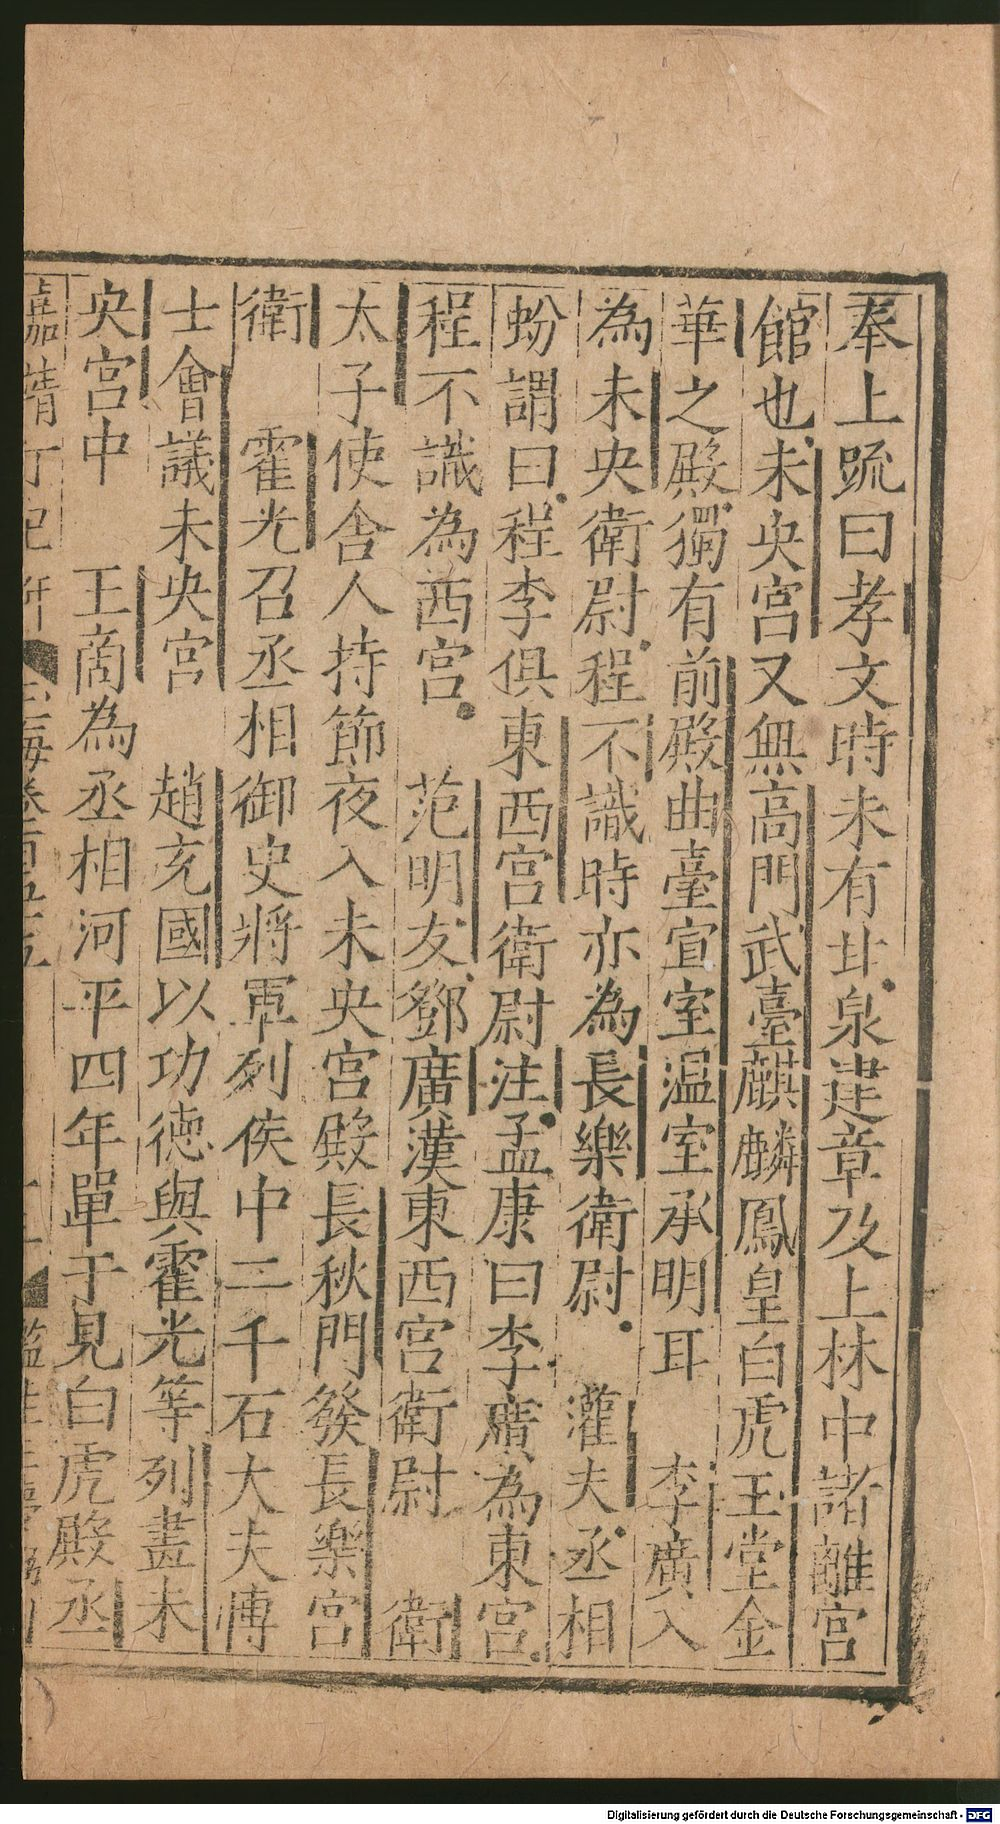 奉上疏曰孝文時未有甘泉建章及上林中諸離宮
館也未央宮又無高門武臺麒麟鳳皇白虎玉堂金
華之殿獨有前殿曲臺宣室溫室承明耳　李廣入
為未央衛尉程不識時亦為長樂衛尉　灌夫丞相
蚡謂曰程李俱東西宮衛尉注孟康曰李廣為東宮
程不識為西宮　范明友鄧廣漢東西宮衛尉　衛
太子使舍人持節夜入未央宮殿長秋門發長樂宮
衛　霍光召丞相御史將軍列侯中二千石大夫博
士會議未央宮　趙充國以功德與霍光等列畫未
央宮中　王商為丞相河平四年單于見白虎殿丞
嘉靖　玉海卷百五十五
Digitalisierung gefördert durch die Deutsche Forschungsgemeinschaft - DFG